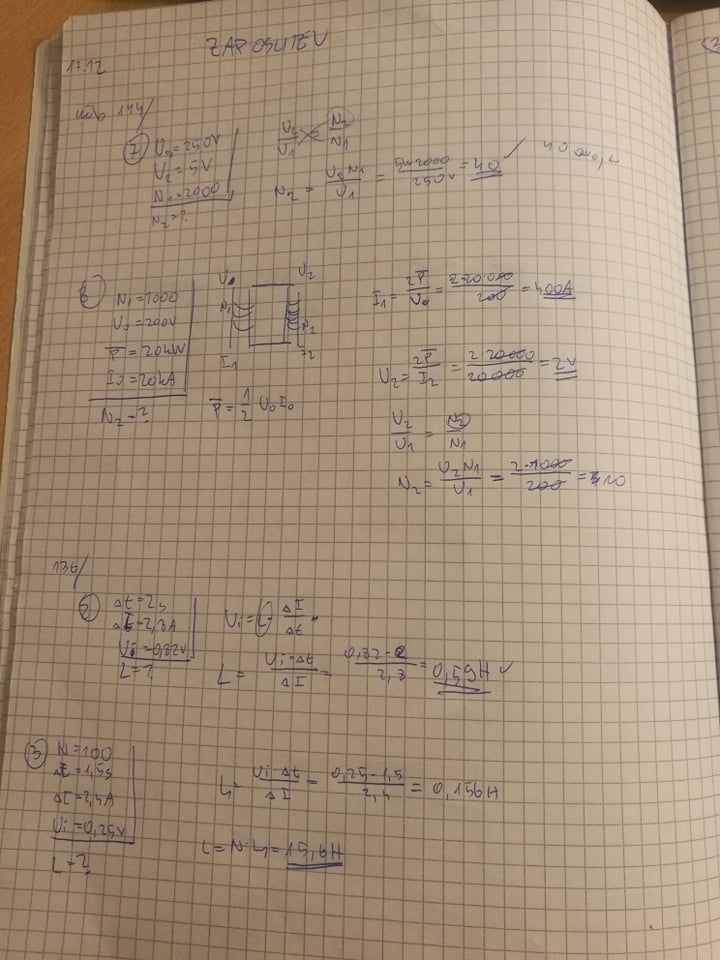 ZAPOSLITEV
17.12
144/
7 U₀=250V
U₂=5V
N₁=2000
N₂=?
U₂/U₁ = N₂/N₁
N₂ = U₂N₁/U₁ = 5·2000/250V = 40 ✓
8 N₁=1000
U₀=200V
P̅=20kW
I₂=20kA
N₂=?
U₁ U₂
N₁ N₂
I₁ I₂
P̅ = 1/2 U₀I₀
I₁ = 2P̅/U₀ = 2·20 000/200 = 400A
U₂ = 2P̅/I₂ = 2·20000/20000 = 2V
U₂/U₁ = N₂/N₁
N₂ = U₂N₁/U₁ = 2·1000/200 = 10
136/
Δt=2s
ΔI=2,8A
Ui=0,82V
L=?
Ui = L · ΔI/Δt
L = Ui·Δt/ΔI = 0,82·2/2,8 = 0,59H ✓
3 N=100
Δt=1,5s
ΔI=2,4A
Ui=0,25V
L=?
L₁= Ui·Δt/ΔI = 0,25·1,5/2,4 = 0,156H
L=N·L₁=15,6H